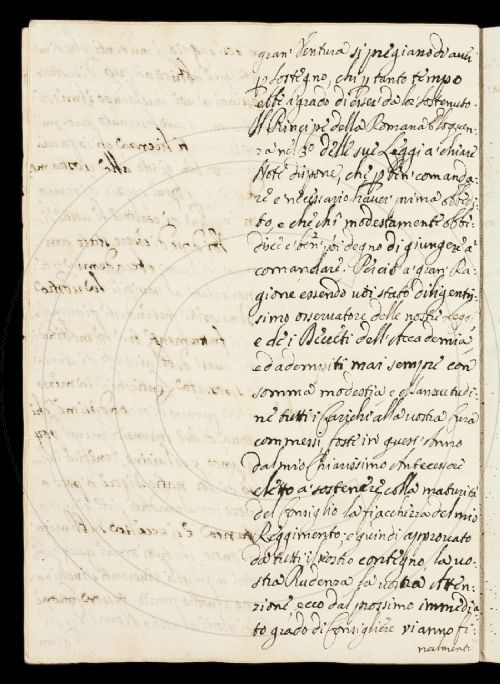 gran Ventura si pregiano di aver
p sostegno, chi p tanto tempo
ebbe a grado di esser da loro sostenuto.
Il Principe della Romana Eloquen-
za nel 3º delle sue Leggi a chiare
Note dispone, che p ben comanda-
re è necessario haver prima obbedi-
to, e che chi modestamente obbe-
disce è ben poi degno di giungere a
comandare. Perciò a gran Ra-
gione essendo voi stato diligentis-
simo osservatore delle nostre Leggi
e de i Decreti dell' Accademia,
ed adempiti mai sempre con
somma modestia e mansuetudi-
ne tutti i Carichi alla vostra Cura
commessi, foste in quest' Anno
dal mio Chiarissimo Antecessore
eletto a sostenere colla maturità
del Consiglio la fiacchezza del mio
Reggimento: e quindi approvato
da tutti il vostro contegno, la vo-
stra Prudenza, la vostra Atten-
zione, ecco dal prossimo immedia-
to grado di Consigliere vi anno fi-
nalmente